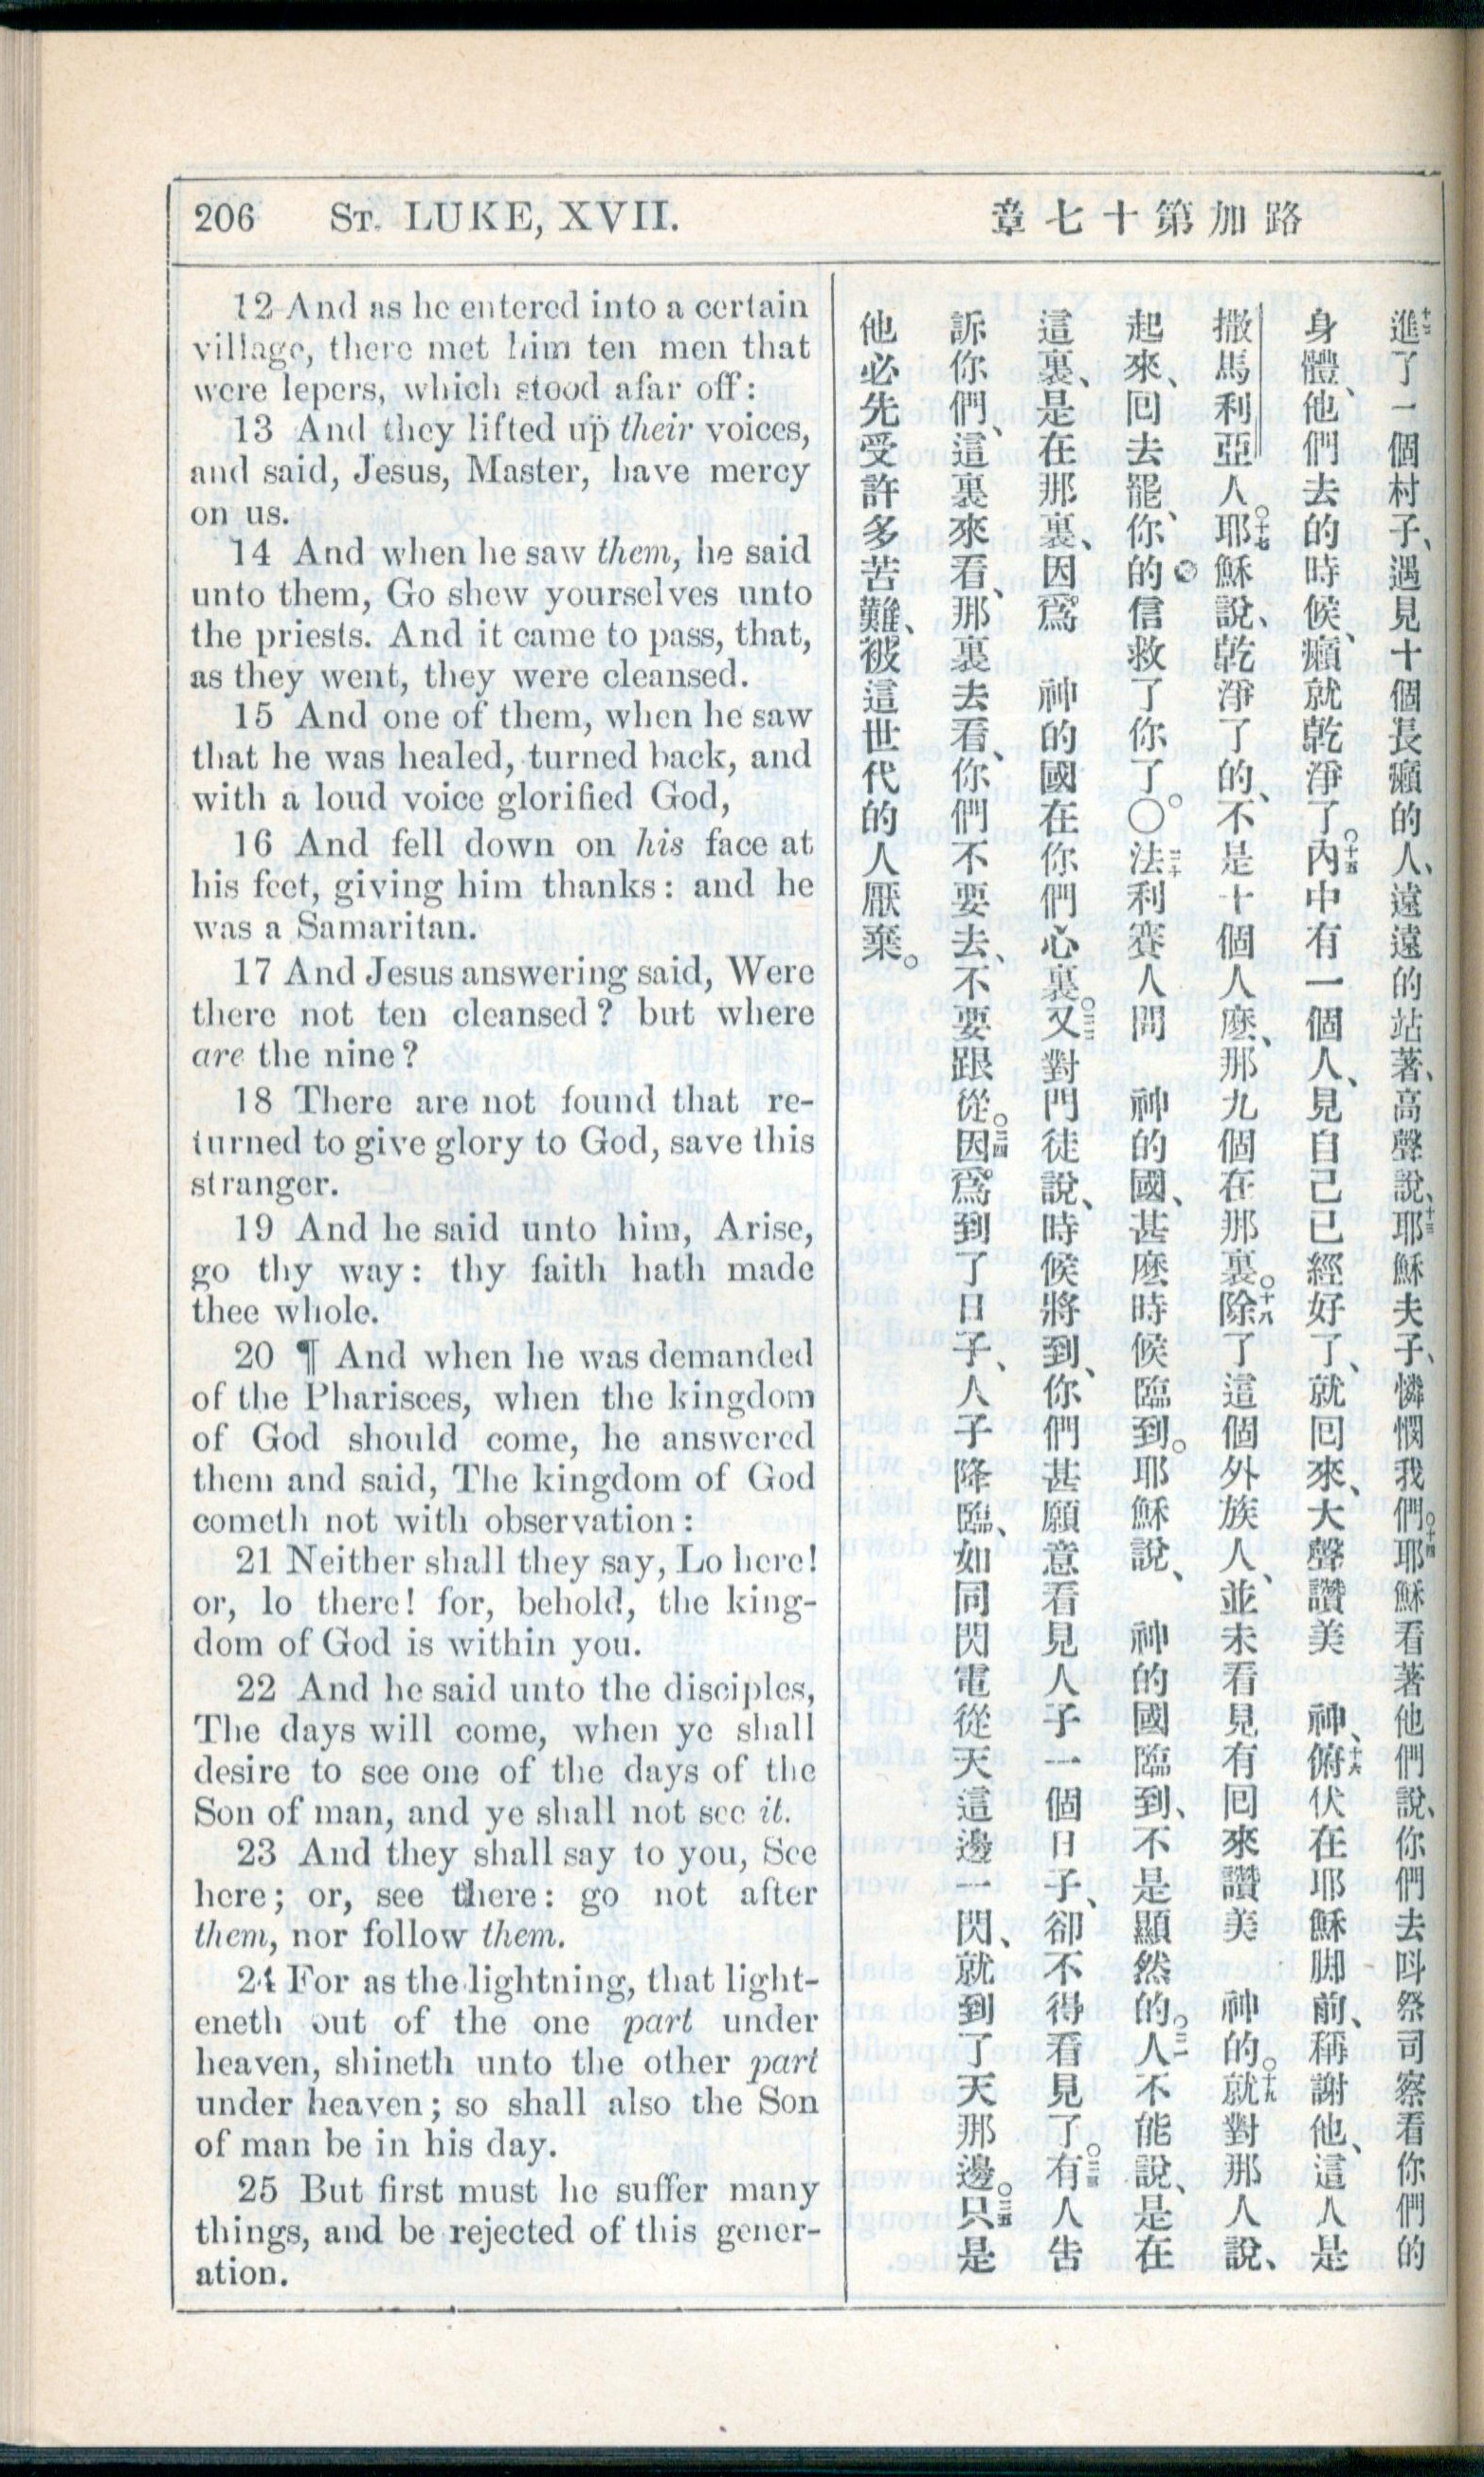 206 ST. LUKE, XVII.
章七十第加路
12 And as he entered into a certain
village, there met him ten men that
were lepers, which stood afar off:
13 And they lifted up their voices,
and said, Jesus, Master, have mercy
on us.
14 And when he saw them, he said
unto them, Go shew yourselves unto
the priests. And it came to pass, that,
as they went, they were cleansed.
15 And one of them, when he saw
that he was healed, turned back, and
with a loud voice glorified God,
16 And fell down on his face at
his feet, giving him thanks: and he
was a Samaritan.
17 And Jesus answering said, Were
there not ten cleansed? but where
are the nine?
18 There are not found that re-
turned to give glory to God, save this
stranger.
19 And he said unto him, Arise,
go thy way: thy faith hath made
thee whole.
20 ¶ And when he was demanded
of the Pharisees, when the kingdom
of God should come, he answered
them and said, The kingdom of God
cometh not with observation:
21 Neither shall they say, Lo here!
or, lo there! for, behold, the king-
dom of God is within you.
22 And he said unto the disciples,
The days will come, when ye shall
desire to see one of the days of the
Son of man, and ye shall not see it.
23 And they shall say to you, See
here; or, see there: go not after
them, nor follow them.
24 For as the lightning, that light-
eneth out of the one part under
heaven, shineth unto the other part
under heaven; so shall also the Son
of man be in his day.
25 But first must he suffer many
things, and be rejected of this gener-
ation.
十二進了一個村子、遇見十個長癩的人、遠遠的站著、高聲說、十三耶穌夫子、憐憫我們。十四耶穌看著他們說、你們去呌祭司察看你們的
身體、他們去的時候、癩就乾淨了。十五內中有一個人、見自己已經好了、就回來、大聲讚美 神、十六俯伏在耶穌脚前、稱謝他、這人是
撒馬利亞人。十七耶穌說、乾淨了的、不是十個人麽、那九個在那裏。十八除了這個外族人、並未看見有回來讚美 神的。十九就對那人說、
起來、回去罷、你的信救了你了。〇二十法利賽人問 神的國、甚麽時候臨到。耶穌說、 神的國臨到、不是顯然的。二一人不能說、是在
這裏、是在那裏、因爲 神的國在你們心裏。二二又對門徒說、時候將到、你們甚願意看見人子一個日子、卻不得看見了。二三有人告
訴你們、這裏來看、那裏去看、你們不要去、不要跟從。二四因爲到了日子、人子降臨、如同閃電從天這邊一閃、就到了天那邊。二五只是
他必先受許多苦難、被這世代的人厭棄。